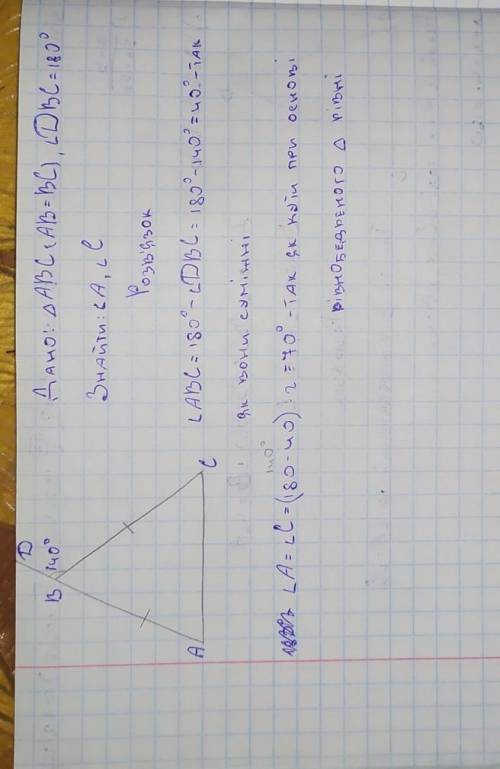 Дано: △ABC (AB=BC), ∠DBC=180°
Знайти: ∠A, ∠C
Розв'язок
D
B 140°
A
C
∠ABC=180°-∠DBC=180°-140°=40°-так
як вони суміжні
140°
∠A=∠C=(180-40):2=70°-так як кути при основі
рівнобедреного △ рівні